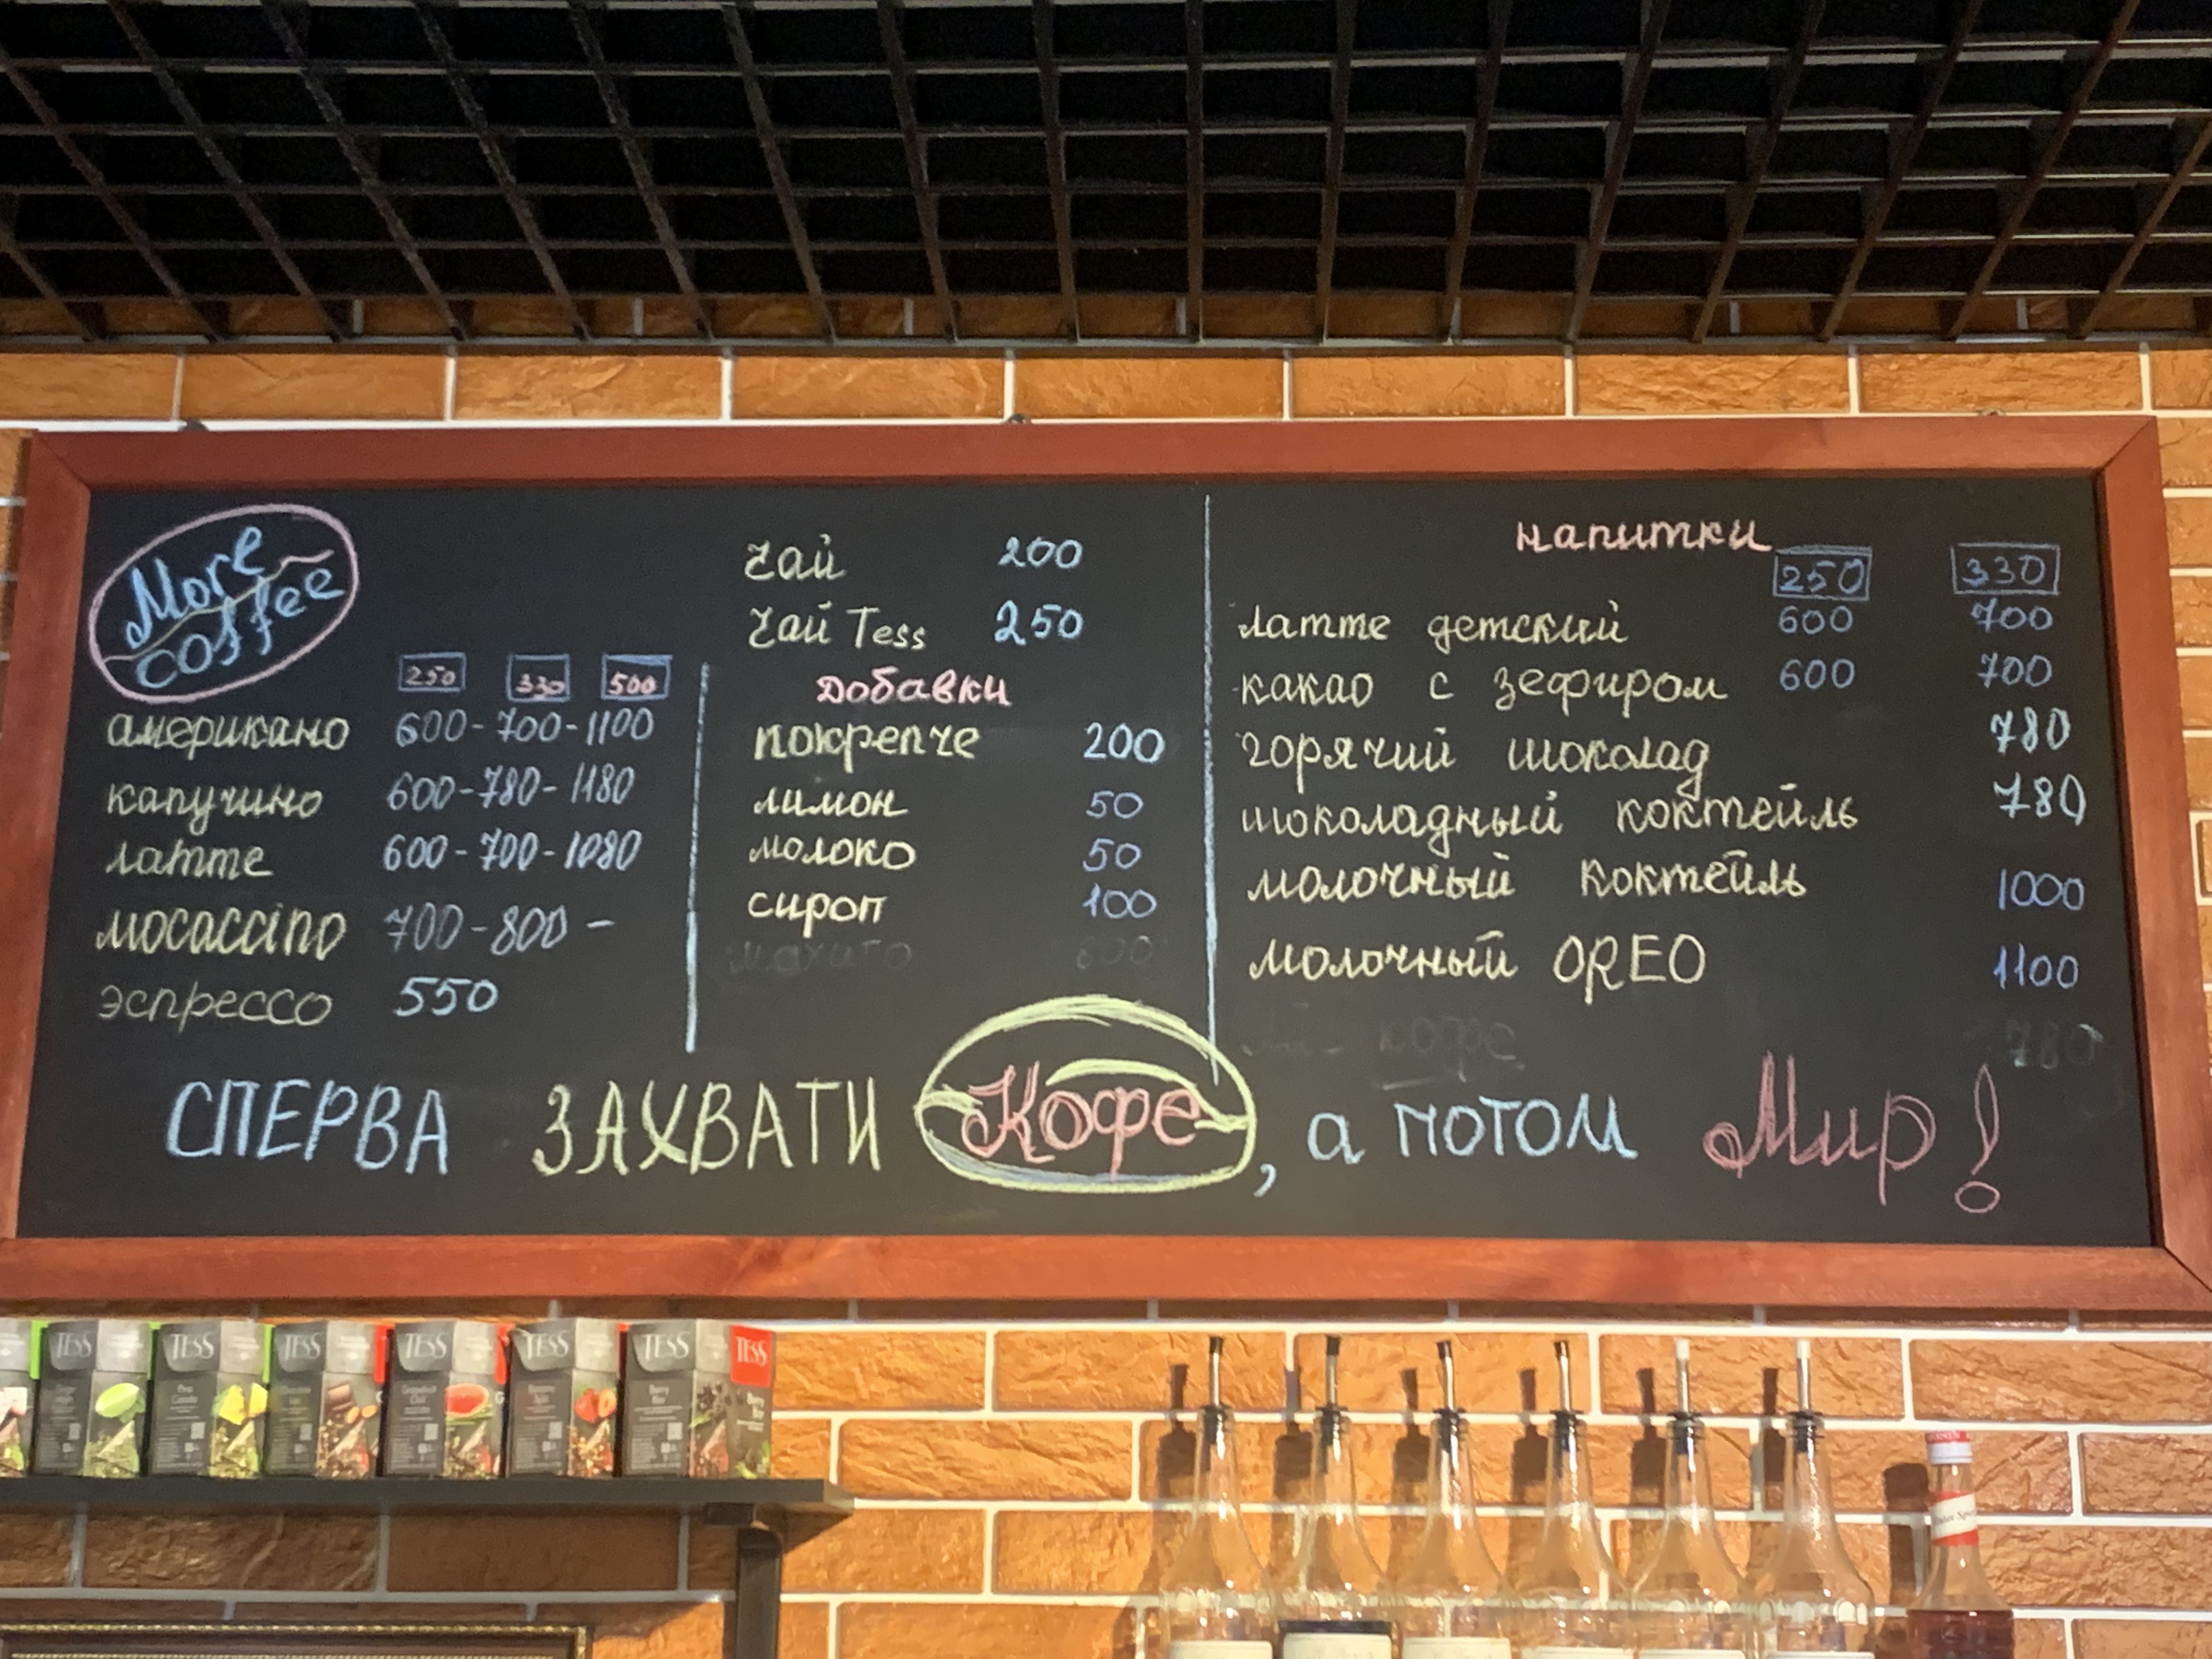 More
coffee
250 330 500
американо 600-700-1100
капучино 600-780-1180
латте 600-700-1080
мосассіпо 700-800 -
эспрессо 550
чай 200
чай Tess 250
добавки
покрепче 200
лимон 50
молоко 50
сироп 100
махито 800
напитки
250 330
латте детский 600 700
какао с зефиром 600 700
горячий шоколад 780
шоколадный коктейль 780
молочный коктейль 1000
молочный OREO 1100
кофе 780
СПЕРВА ЗАХВАТИ Кофе, а потом Мир!
TESS TESS TESS TESS TESS TESS TESS
Berry
Bar